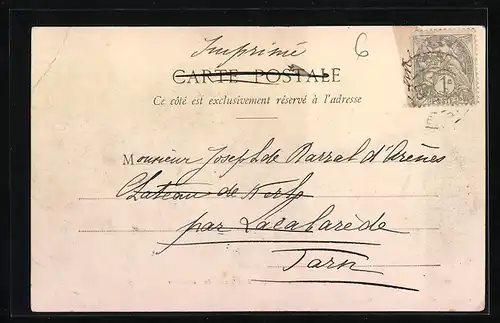 Imprimé
6
CARTE POSTALE
Ce côté est exclusivement réservé à l'adresse
1c
Monsieur Joseph de Barral d'Arènes
Château de
par Lacabarède
Tarn